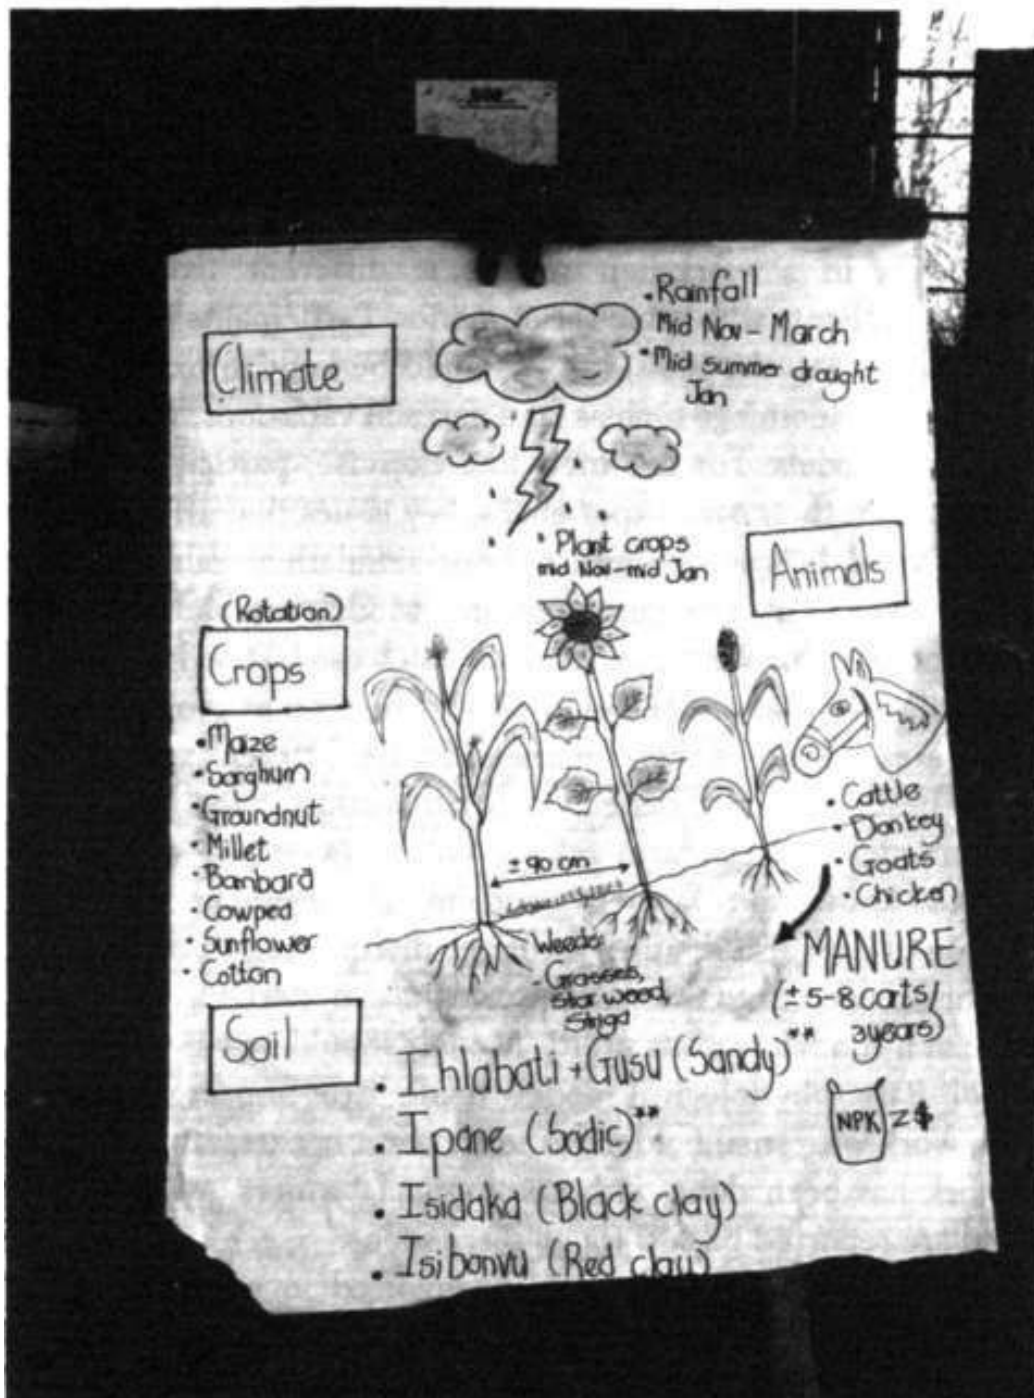 Climate
• Rainfall
Mid Nov - March
• Mid summer drought
Jan
Plant crops
mid Nov - mid Jan
Animals
(Rotation)
Crops
• Maize
• Sorghum
• Groundnut
• Millet
• Bambara
• Cowpea
• Sunflower
• Cotton
± 90 cm
Weeds:
- Grasses,
Star wood,
Striga
• Cattle
• Donkey
• Goats
• Chicken
MANURE
(± 5-8 carts/
3 years)
NPK Z$
Soil
• Ihlabati + Gusu (Sandy)**
• Ipane (Sodic)**
• Isidaka (Black clay)
• Isibonvu (Red clay)